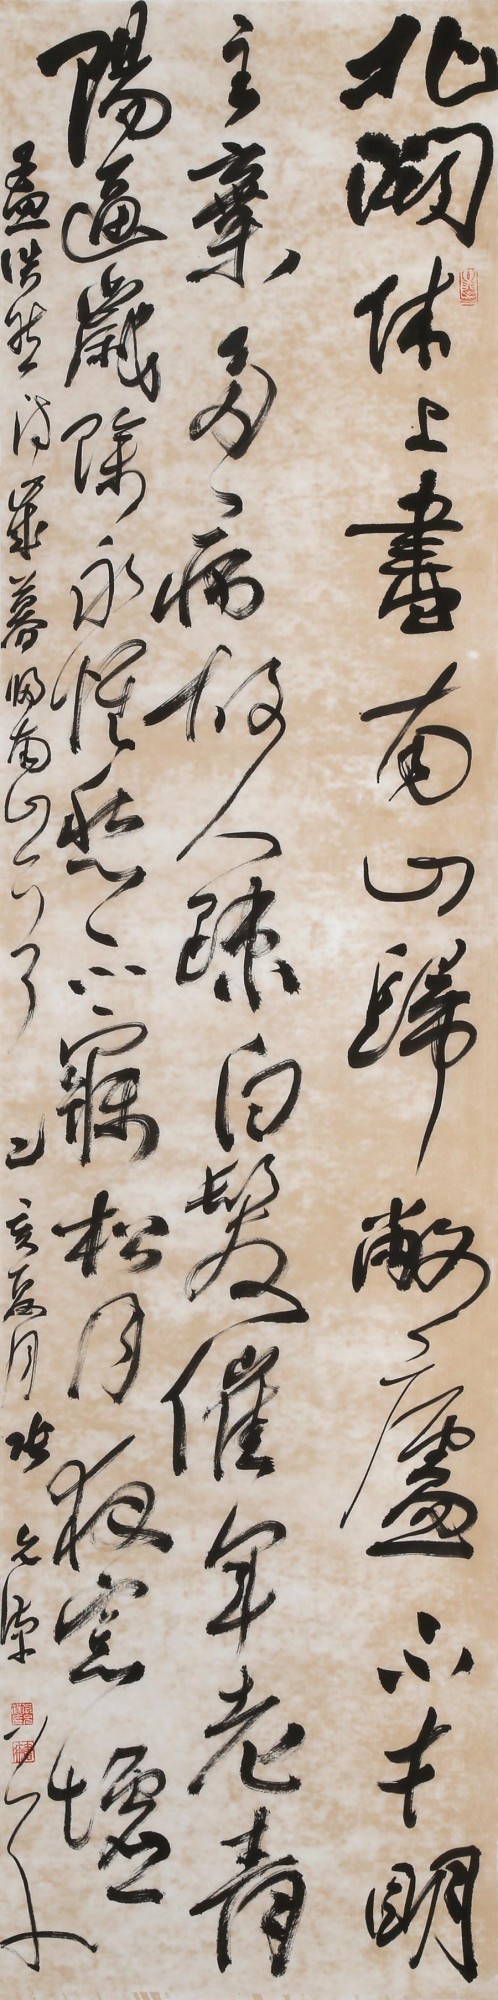 北闕休上書南山歸敝廬不才明
主棄多病故人疎白髮催年老青
陽逼歲除永懷愁不寐松月夜窓墟
孟浩然诗歲暮歸南山 己亥夏月